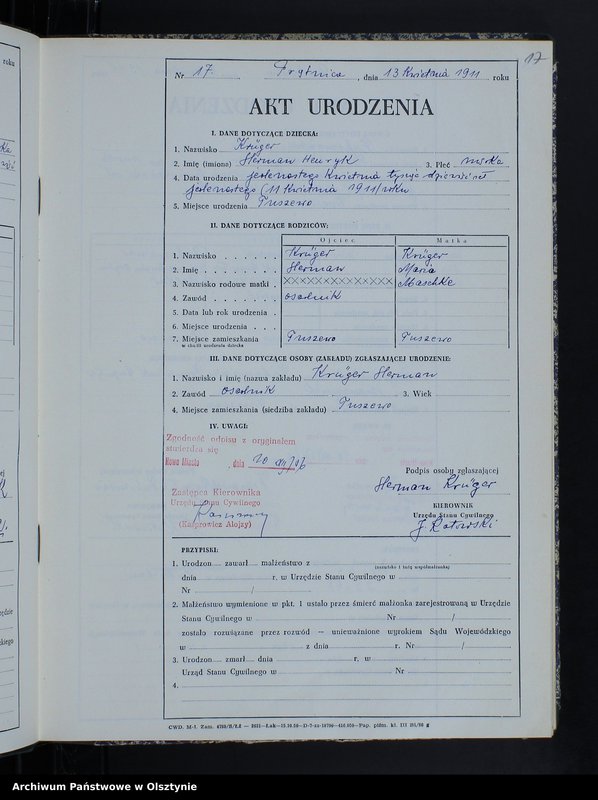 17
Nr 17. Prątnica, dnia 13 Kwietnia 1911 roku
AKT URODZENIA
I. DANE DOTYCZĄCE DZIECKA:
1. Nazwisko Krüger
2. Imię (imiona) Herman Henryk 3. Płeć męska
4. Data urodzenia jedenastego Kwietnia tysiąc dziewięćset
jedenastego (11 Kwietnia 1911) roku
5. Miejsce urodzenia Tuszewo
II. DANE DOTYCZĄCE RODZICÓW:
Ojciec Matka
1. Nazwisko Krüger Krüger
2. Imię Herman Maria
3. Nazwisko rodowe matki Maschke
4. Zawód osadnik
5. Data lub rok urodzenia
6. Miejsce urodzenia
7. Miejsce zamieszkania Tuszewo Tuszewo
w chwili urodzenia dziecka
III. DANE DOTYCZĄCE OSOBY (ZAKŁADU) ZGŁASZAJĄCEJ URODZENIE:
1. Nazwisko i imię (nazwa zakładu) Krüger Herman
2. Zawód osadnik 3. Wiek
4. Miejsce zamieszkania (siedziba zakładu) Tuszewo
IV. UWAGI:
Zgodność odpisu z oryginałem
stwierdza się
Nowe Miasto, dnia 20
Podpis osoby zgłaszającej
Herman Krüger
Zastępca Kierownika
Urzędu Stanu Cywilnego
(Kasprowicz Alojzy)
KIEROWNIK
Urzędu Stanu Cywilnego
J. Ratowski
PRZYPISKI:
1. Urodzon zawarł małżeństwo z
(nazwisko i imię współmałżonka)
dnia r. w Urzędzie Stanu Cywilnego w
Nr /
2. Małżeństwo wymienione w pkt. 1 ustało przez śmierć małżonka zarejestrowaną w Urzędzie
Stanu Cywilnego w Nr /
zostało rozwiązane przez rozwód — unieważnione wyrokiem Sądu Wojewódzkiego
w z dnia r. Nr /
3. Urodzon zmarł dnia r. w
Urząd Stanu Cywilnego w Nr
4.
Archiwum Państwowe w Olsztynie